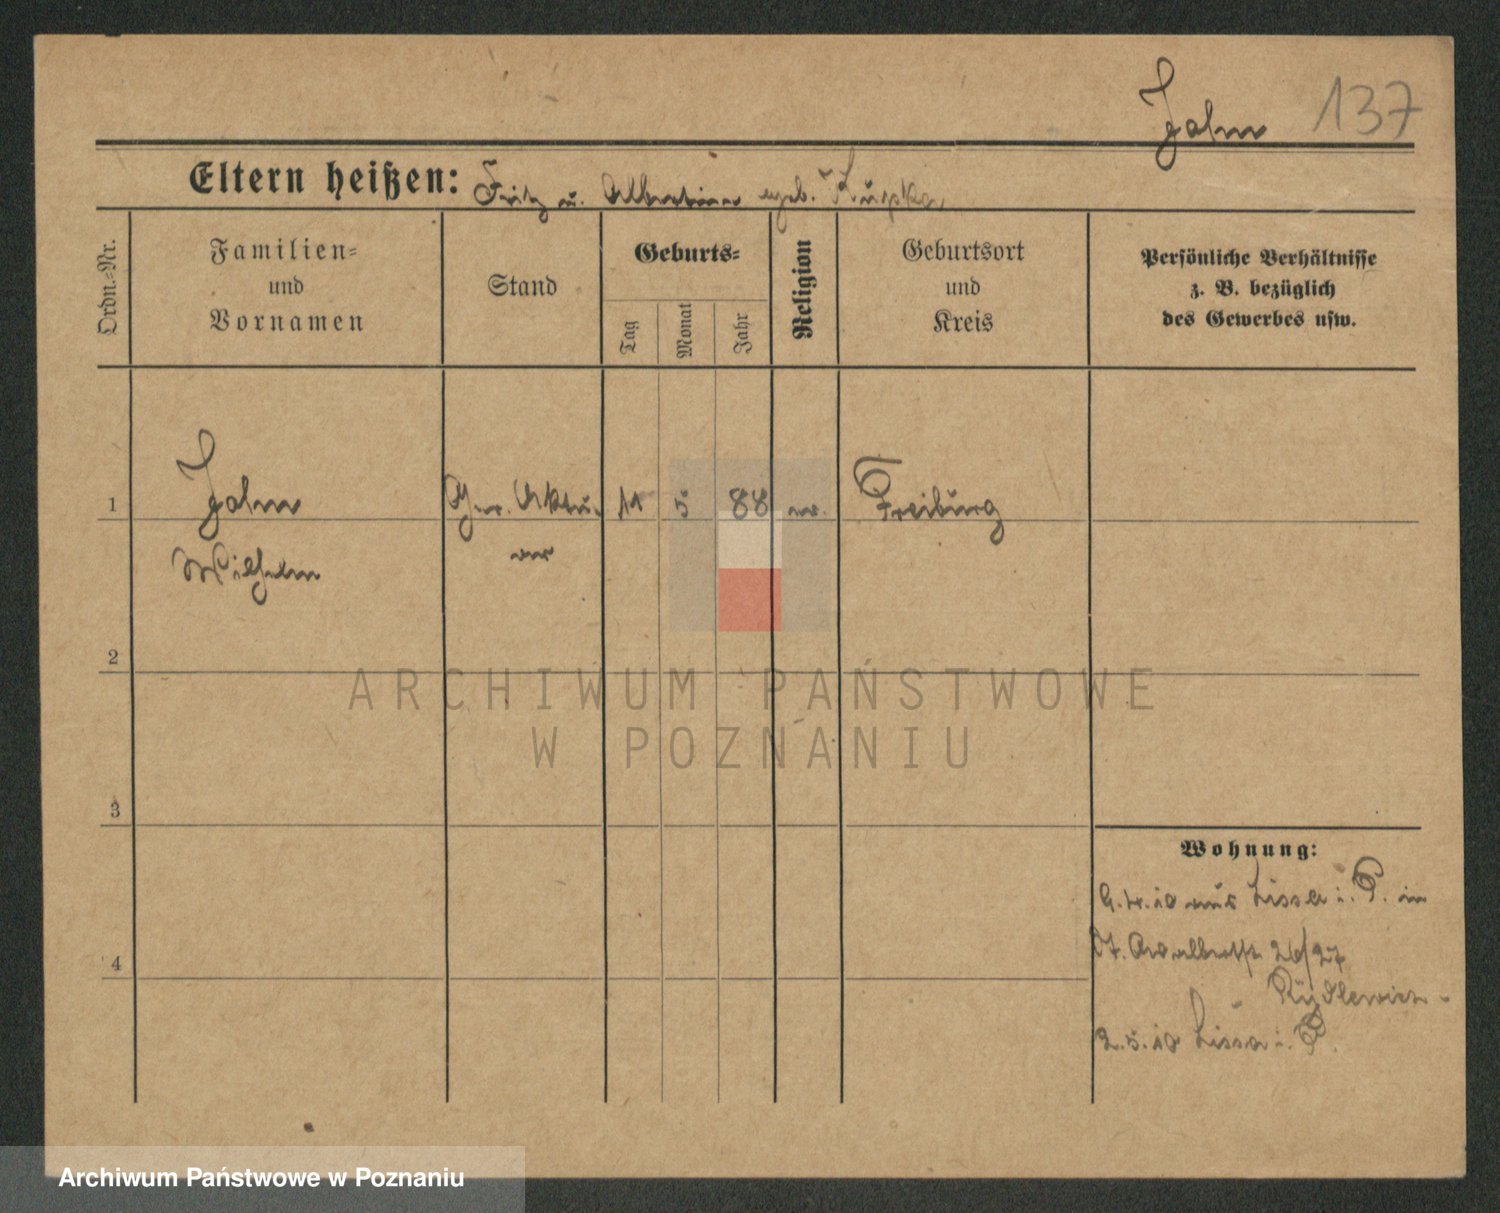 Jahn 137
Eltern heißen: Fritz u. Albertine geb. Kupka
Ordn.-Nr.
Familien-
und
Vornamen
Stand
Geburts-
Tag
Monat
Jahr
Religion
Geburtsort
und
Kreis
Persönliche Verhältnisse
z. B. bezüglich
des Gewerbes usw.
1
Jahn
Wilhelm
Ger. Aktu-
ar
11 5 88 ev. Freiburg
2
3
4
Wohnung:
aus Lissa i. P. in
St. Adalbertstr. 26/27
Rydlewicz
2.5.10 Lissa i. P.
ARCHIWUM PAŃSTWOWE
W POZNANIU
Archiwum Państwowe w Poznaniu